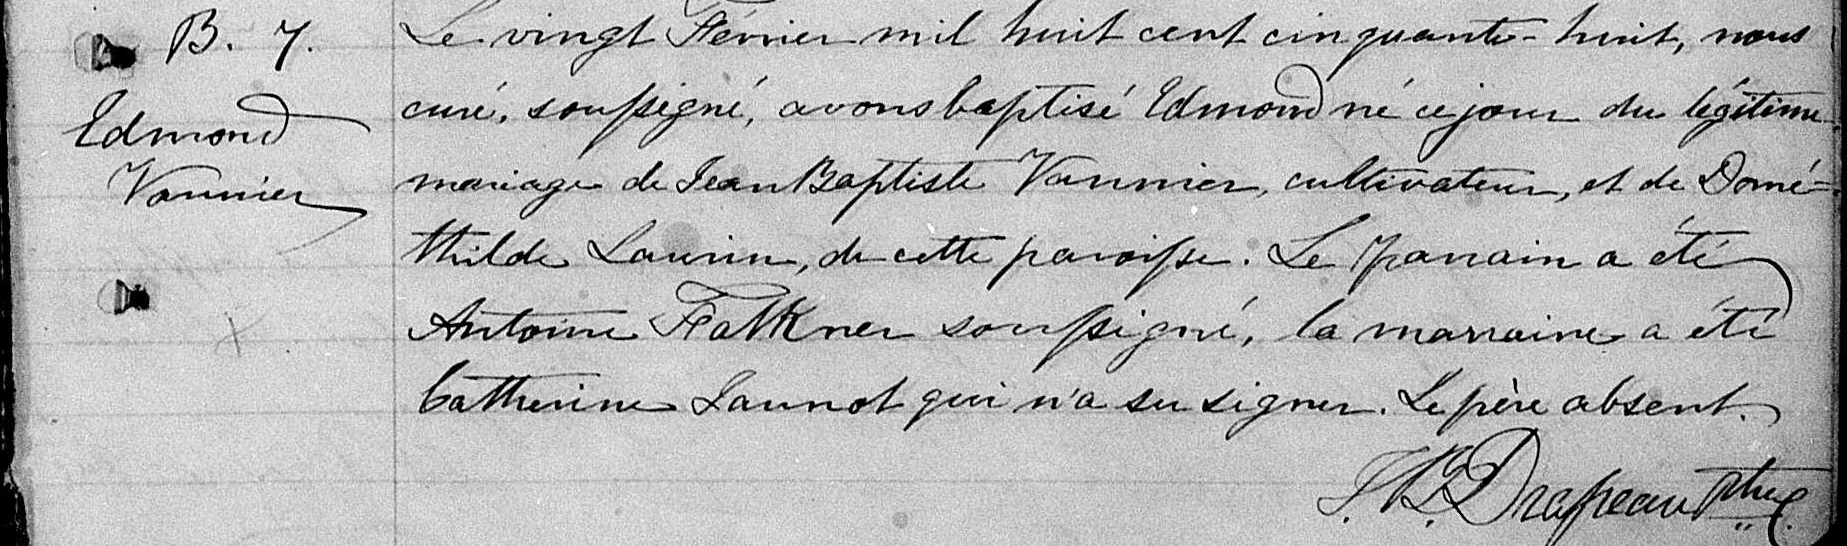 B. 7.
Edmond
Vannier
Le vingt Février mil huit cent cinquante-huit, nous
curé, soussigné, avons baptisé Edmond né ce jour du légitime
mariage de Jean Baptiste Vannier, cultivateur, et de Domé=
thilde Laurin, de cette paroisse. Le parrain a été
Antoine Falkner soussigné, la marraine a été
Catherine Jaunot qui n'a su signer. Le père absent.
J. B. Drapeau Ptre